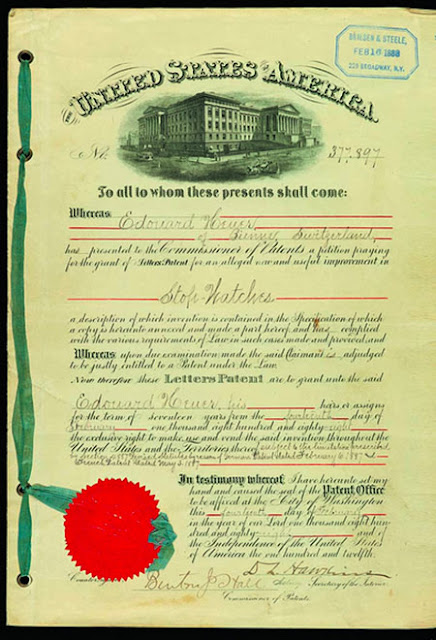 BRIESEN & STEELE,
FEB 16 1888
229 BROADWAY, N.Y.
THE UNITED STATES OF AMERICA
No. 377,897
To all to whom these presents shall come:
Whereas Edouard Heuer,
of Bienne, Switzerland,
has presented to the Commissioner of Patents a petition praying
for the grant of Letters Patent for an alleged new and useful improvement in
Stop Watches
a description of which invention is contained in the Specification of which
a copy is hereunto annexed and made a part hereof, and has complied
with the various requirements of Law in such cases made and provided, and
Whereas upon due examination made the said Claimant is adjudged
to be justly entitled to a Patent under the Law.
Now therefore these Letters Patent are to grant unto the said
Edouard Heuer, his heirs or assigns
for the term of seventeen years from the fourteenth day of
February one thousand eight hundred and eighty-eight
the exclusive right to make, use and vend the said invention throughout the
United States and the Territories thereof subject to the limitation prescribed
by Section 4887 Revised Statutes by reason of German Patent dated February 6, 1887 and
French Patent dated May 3, 1887
In testimony whereof I have hereunto set my
hand and caused the seal of the Patent Office
to be affixed at the City of Washington
this fourteenth day of February
in the year of our Lord one thousand eight hun-
dred and eighty-eight and of
the Independence of the United States
of America the one hundred and twelfth.
D. L. Hawkins
Countersigned Acting Secretary of the Interior.
Benton J. Hall
Commissioner of Patents.